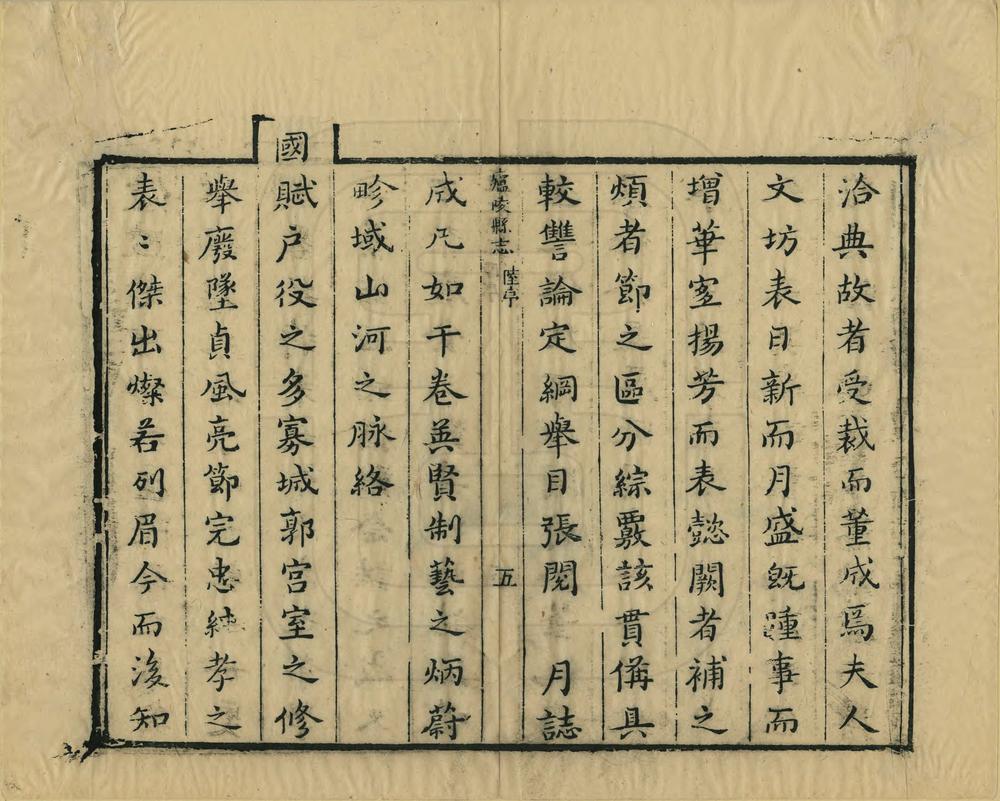 洽典故者受裁而董成焉夫人
文坊表日新而月盛旣踵事而
增華寔揚芳而表懿闕者補之
煩者節之區分綜覈該貫備具
較讐論定綱舉目張閱 月誌
廬陵縣志 陸序 五
成凡如干卷英賢制藝之炳蔚
畛域山河之脉絡
國賦户役之多寡城郭宫室之修
舉廢墜貞風亮節完忠純孝之
表〻傑出燦若列眉今而後知